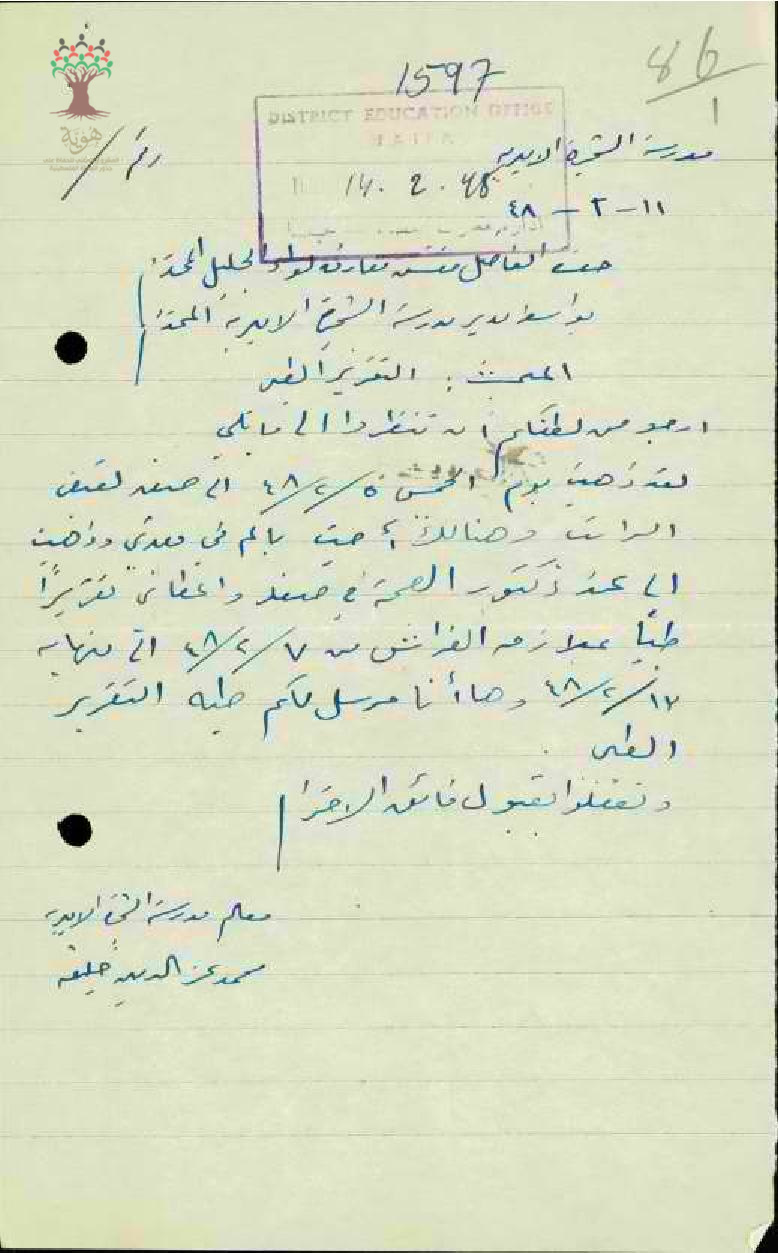 1597
86
1
DISTRICT EDUCATION OFFICE
HAIFA
14. 2. 48
هوية
رقم /
مدرسة الشجرة الاميرية
١١ - ٢ - ٤٨
حضرة الفاضل مفتش معارف لواء الجليل المحترم
بواسطة مدير مدرسة الشجرة الاميرية المحترم
المبحث : التقرير الطبي
ارجو من لطفكم ان تنظروا الى ما يلي
لقد ذهبت يوم الخميس ٥/٢/٤٨ الى صفد لقبض
الراتب وهنالك أُصبت بألم في معدتي وذهبت
الى عند دكتور الصحة في صفد واعطاني تقريرًا
طبيًا بملازمة الفراش من ٧/٢/٤٨ الى نهاية
١٧/٢/٤٨ وها أنا مرسل لكم طيه التقرير
الطبي .
وتفضلوا بقبول فائق الاحترام
معلم مدرسة الشجرة الاميرية
محمد عز الدين خليفة